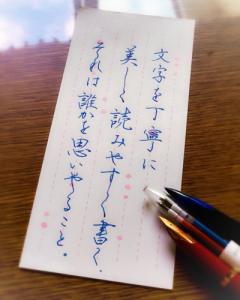 文字を丁寧に
美しく読みやすく書く。
それは誰かを思いやること。